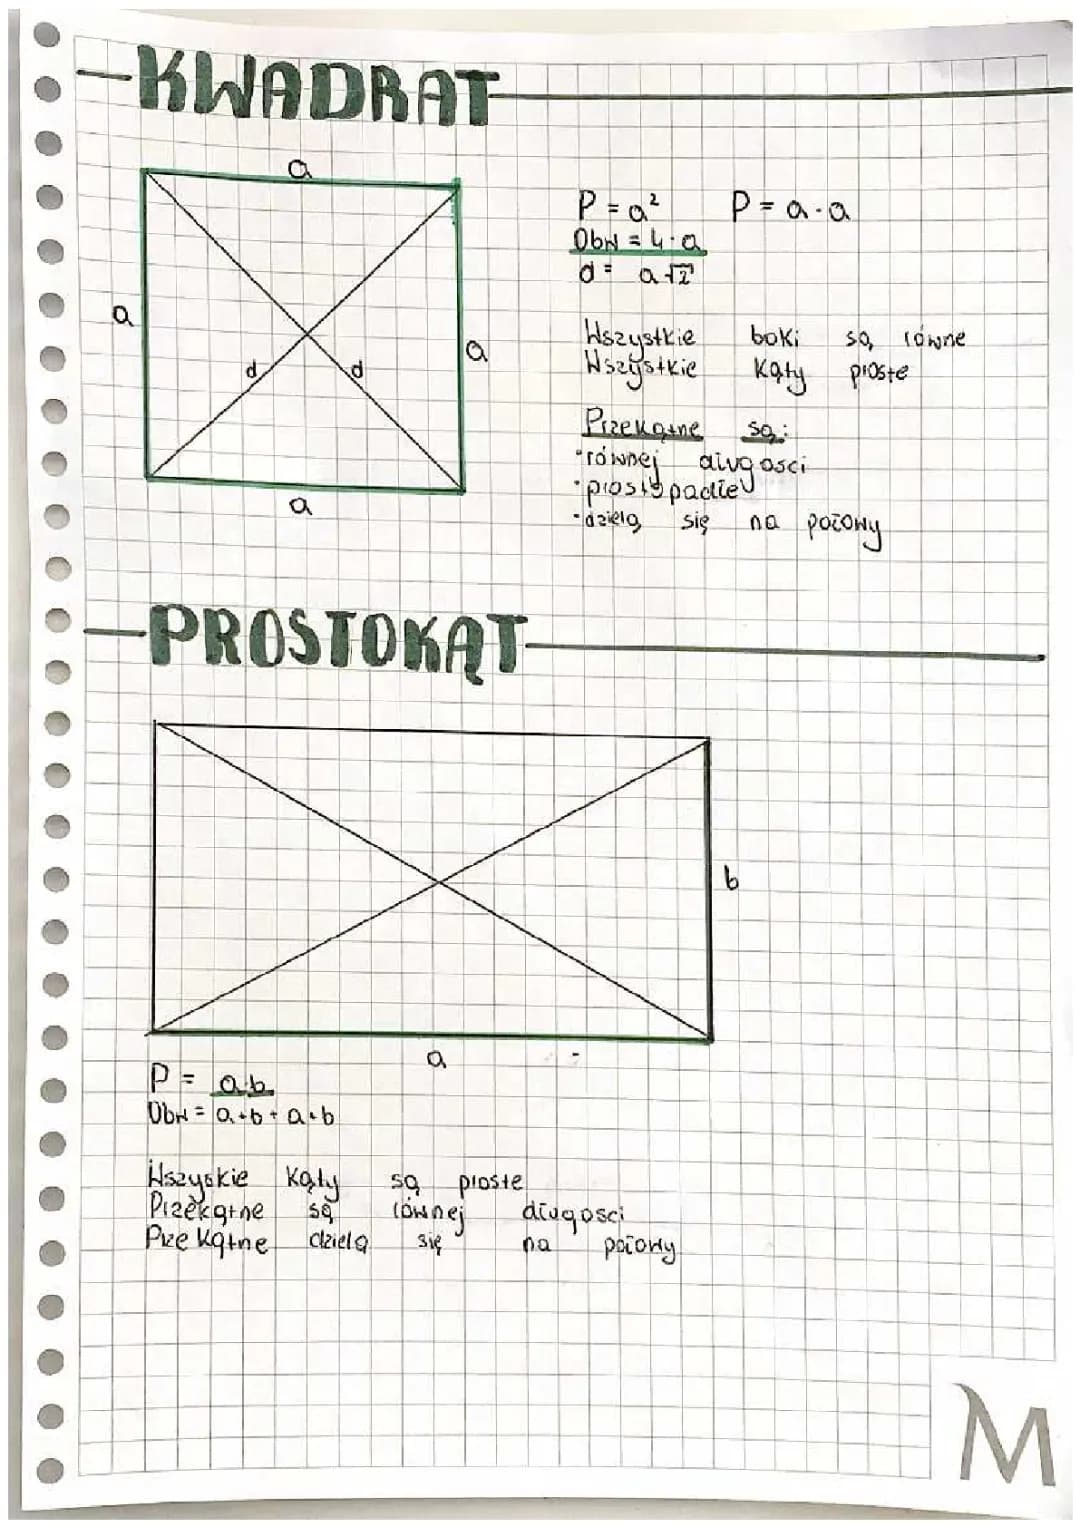 KWADRAT
a
P = a² P = a·a
Obw = 4·a
d = a√2
a
a
d
d
Wszystkie boki są równe
Wszystkie kąty proste
Przekątne są:
·równej długosci
·prostopadłe
·dzielą się na połowy
a
PROSTOKĄT
b
a
P = a·b
Obw = a+b+a+b
Wszyskie kąty są proste
Przekątne są równej długosci
Przekątne dzielą się na połowy
M